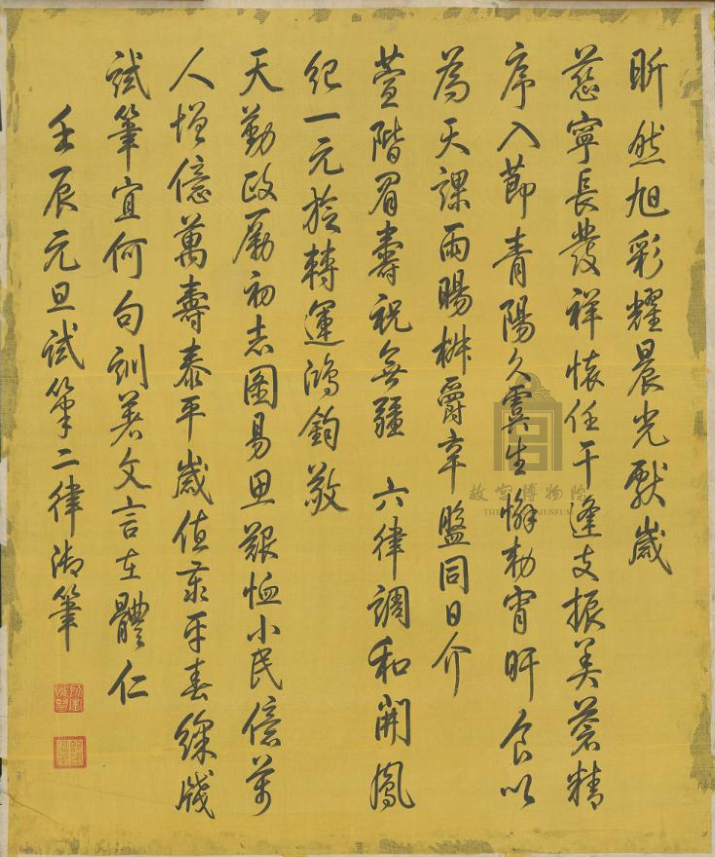 昕然旭彩耀晨光獻歲
慈寧長發祥懷任干逢支振美蒼精
序入節青陽久虞生懈勑宵旰食以
為天課雨暘椒爵辛盤同日介
萱階眉壽祝無疆 六律調和開鳳
紀一元捻轉運鴻鈞敬
天勤政勵初志圖易思艱恤小民億萬
人增億萬壽泰平歲值泰平春綵牋
試筆宜何句訓著文言在體仁
壬辰元旦試筆二律御筆
故宫博物院
THE PALACE MUSEUM